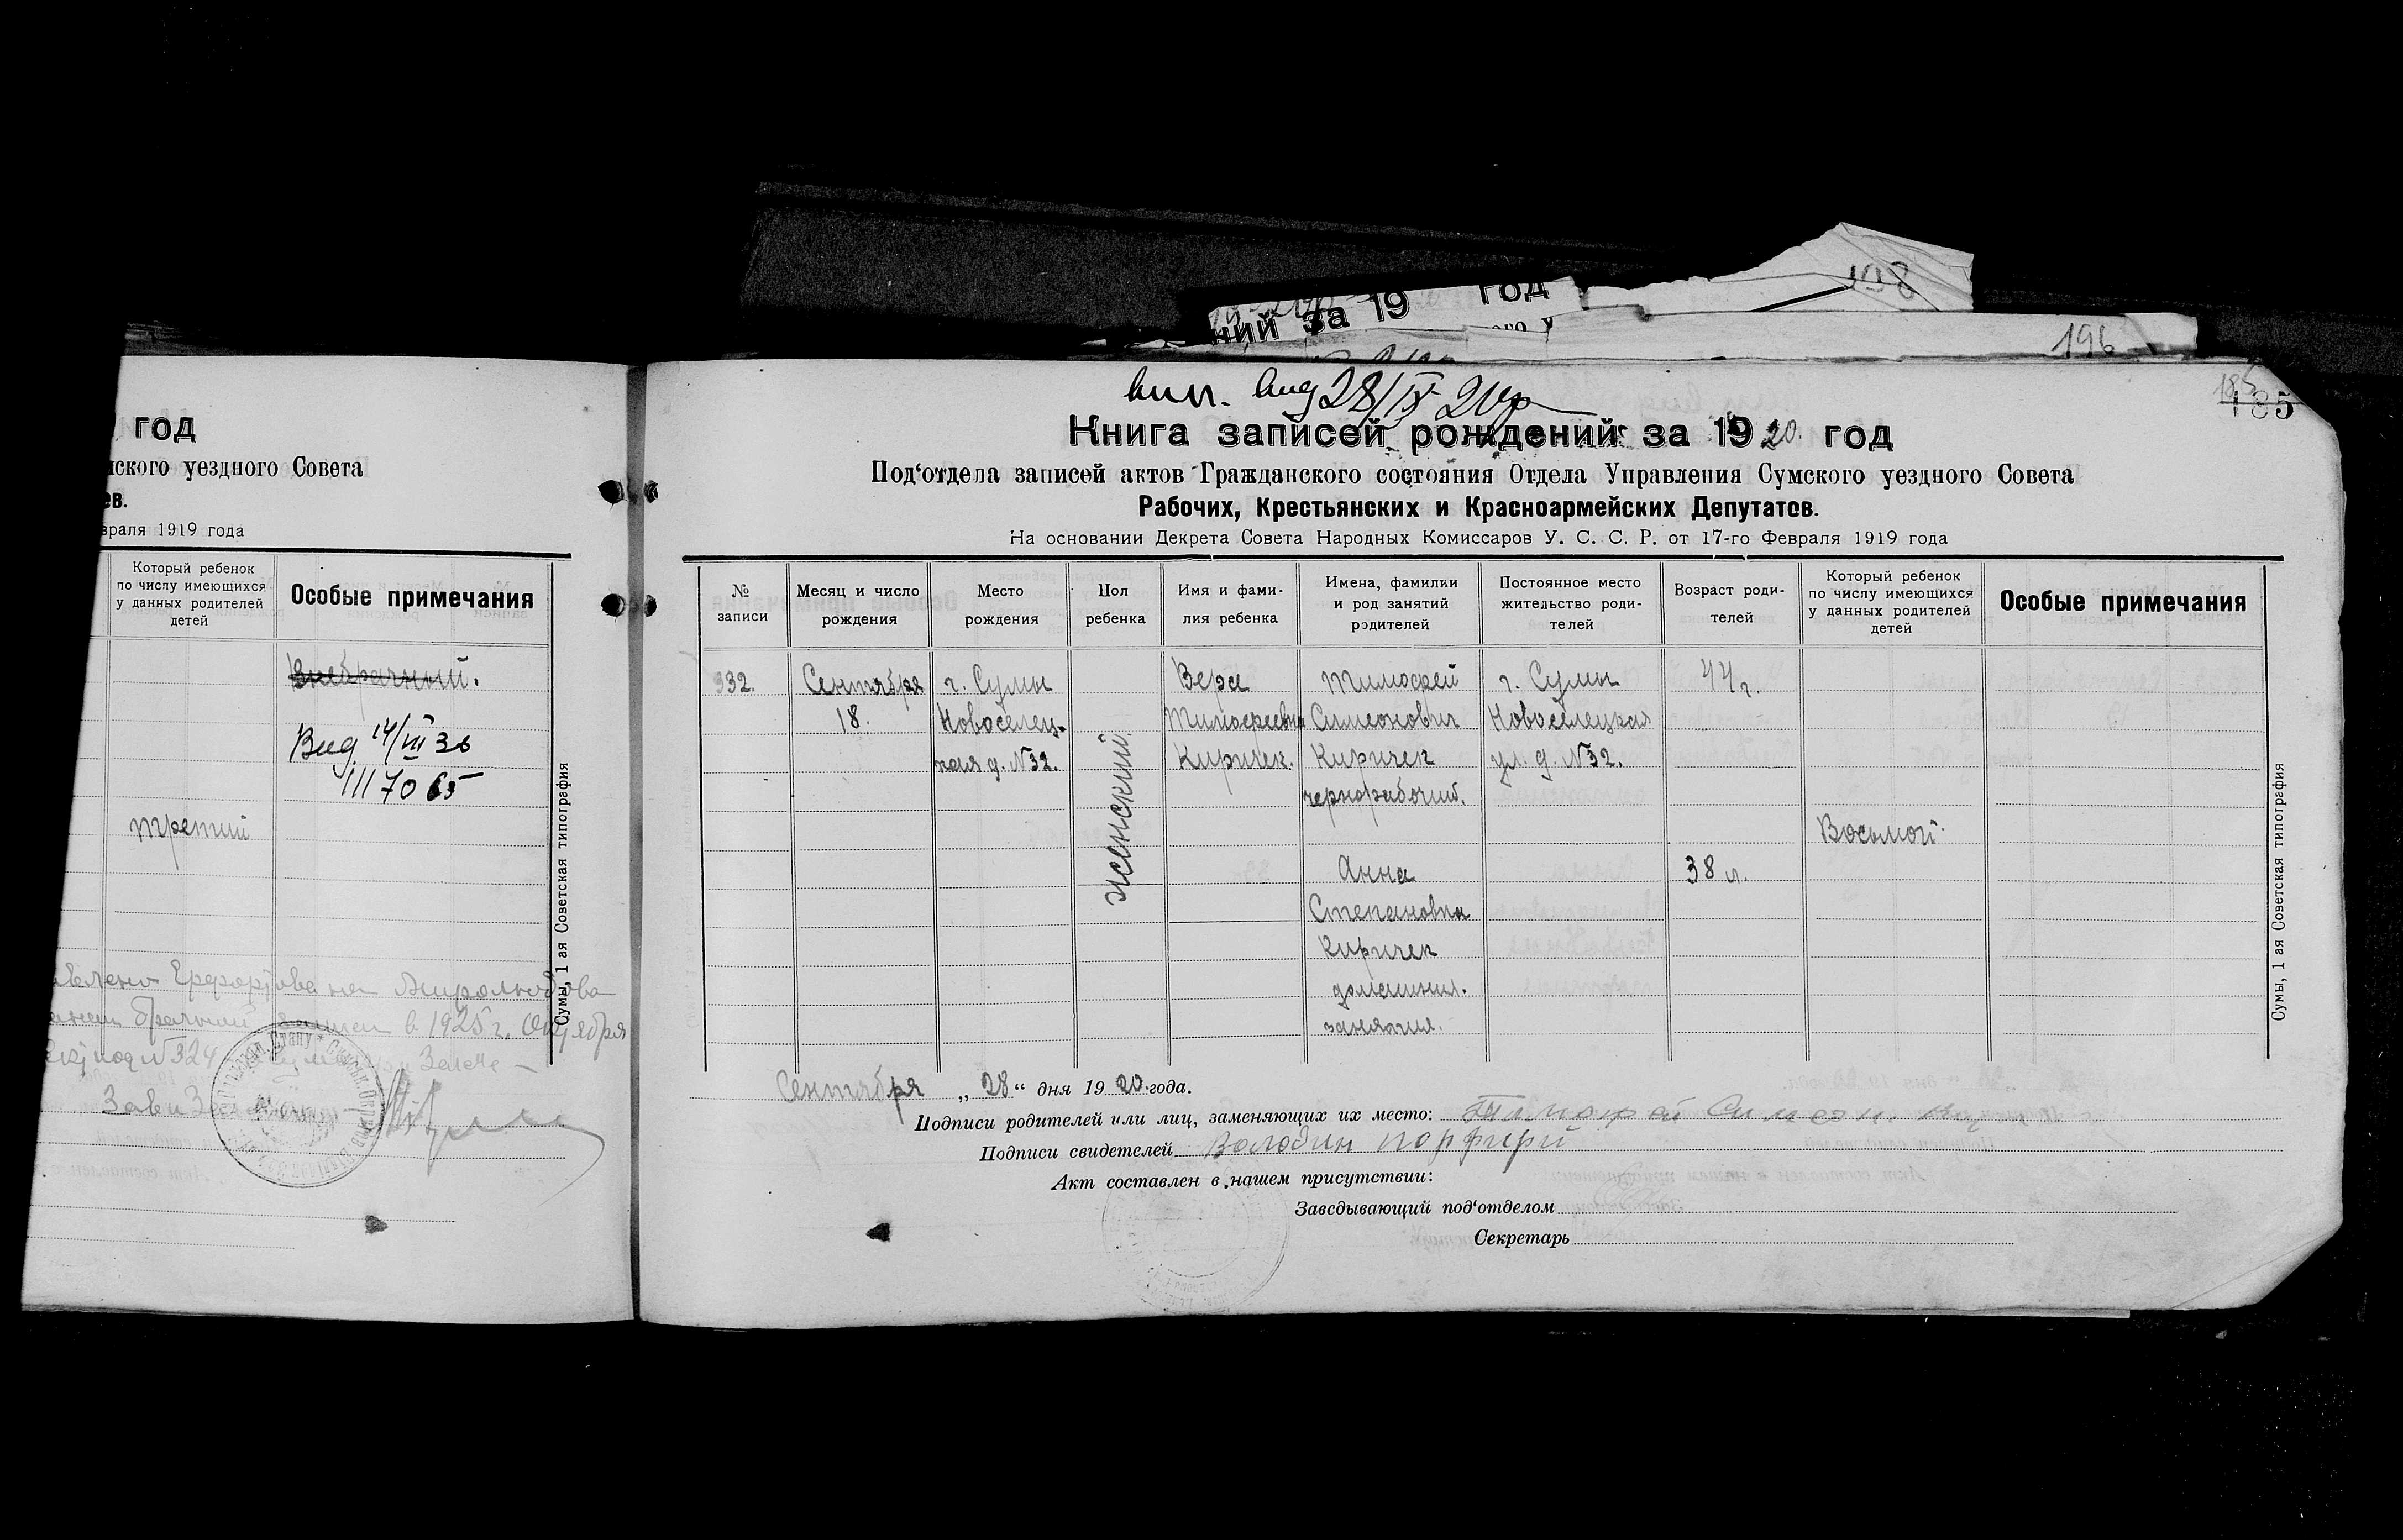 198
год
ний за 19
196
год
нского уездного Совета
ев.
враля 1919 года
Который ребенок
по числу имеющихся
у данных родителей
детей
Особые примечания
Внебрачный.
Вид 14/VIII 36
III 70 65
третий
Сумы, 1 ая Советская типография
в 1925 г. Октября
под N 324
185
185
вип. вид 28/IX
Книга записей рождений за 1920 год
Под‘отдела записей актов Гражданского состояния Отдела Управления Сумского уездного Совета
Рабочих, Крестьянских и Красноармейских Депутатов.
На основании Декрета Совета Народных Комиссаров У. С. С. Р. от 17-го Февраля 1919 года
№
записи
Месяц и число
рождения
Место
рождения
Пол
ребенка
Имя и фами-
лия ребенка
Имена, фамилии
и род занятий
родителей
Постоянное место
жительство роди-
телей
Возраст роди-
телей
Который ребенок
по числу имеющихся
у данных родителей
детей
Особые примечания
932.
Сентября
18.
г. Сумы
Новоселец-
кая д. N32.
женский.
Вера
Тимофеевна
Киричек.
Тимофей
Симеонович
Киричек
чернорабочий.
Анна
Степановна
Киричек
домашния.
занятия.
г. Сумы
Новоселецкая
ул. д. N32.
44 г.
38 л.
Восьмой.
Сумы, 1 ая Советская типография
Сентября „28“ дня 1920 года.
Подписи родителей или лиц, заменяющих их место: Тимофей Симеон.
Подписи свидетелей Володин Порфирий
Акт составлен в нашем присутствии:
Заведывающий под‘отделом
Секретарь